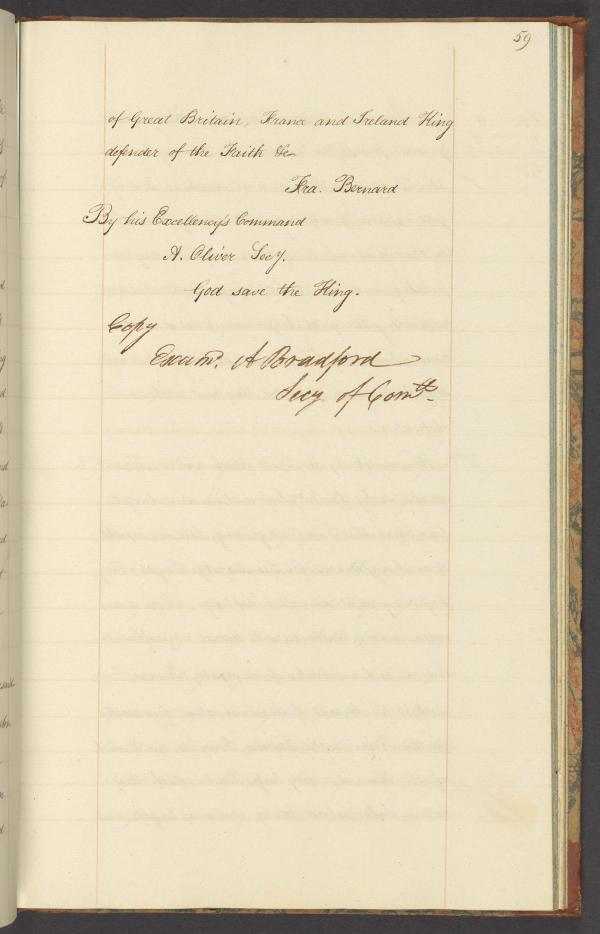 59
of Great Britain, France and Ireland King
defender of the Faith &c
Fra. Bernard
By his Excellency's Command
A. Oliver Secy.
God save the King.
Copy
Examd. A Bradford
Secy of Comtt.